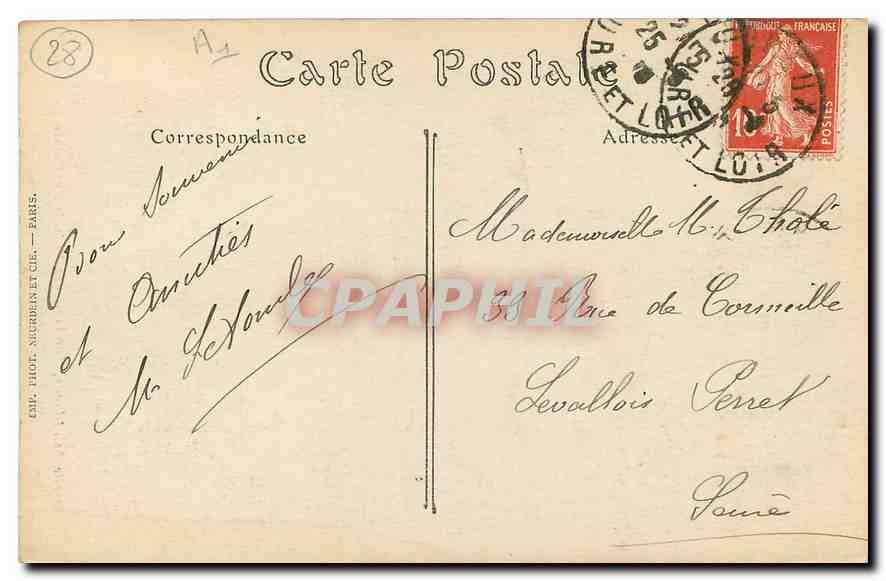 28
A1
Carte Postale
Correspondance
Adresse
Bon Souvenir
et Amitiés
M.
Mademoiselle M. Tholé
38 Rue de Cormeille
Levallois Perret
Seine
EMP. PHOT. NEURDEIN ET CIE. — PARIS.
CPAPHIL
RÉPUBLIQUE FRANÇAISE
10
POSTES
EURE ET LOIR
25
EURE ET LOIR